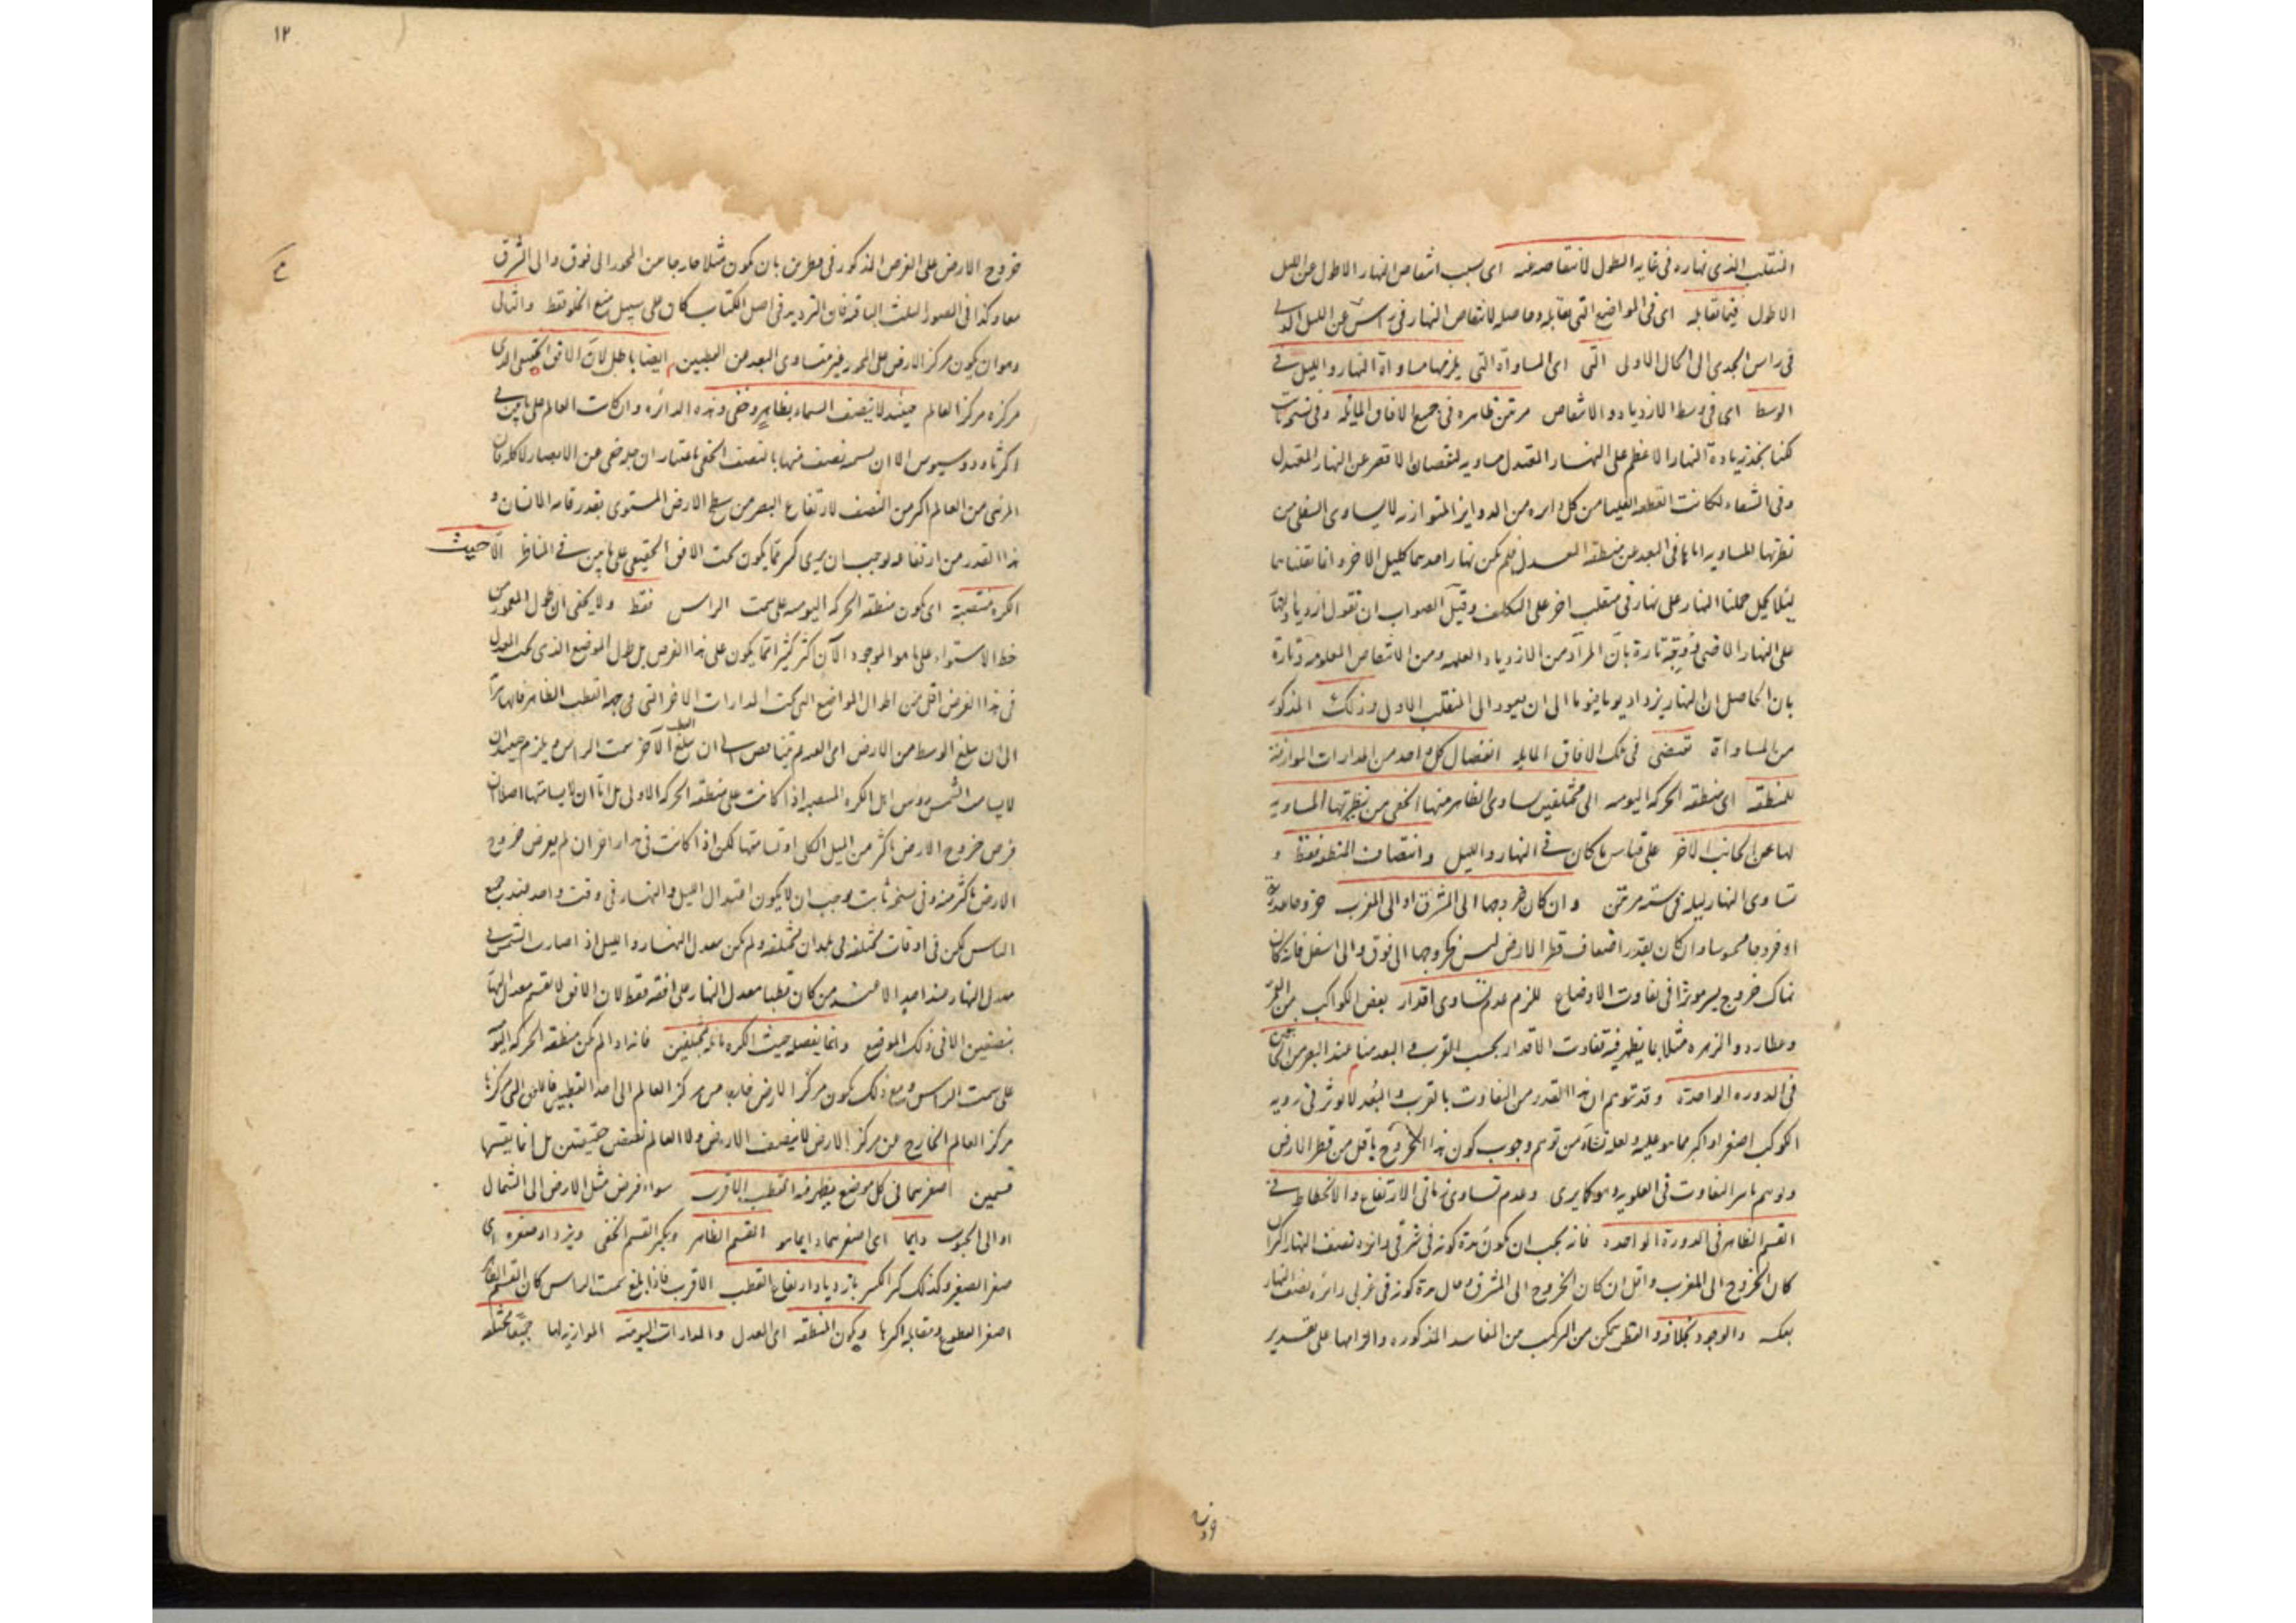 المنقلب الذى نهاره فى غاية الطول لانتقاصه عنه اى بسبب انتقاص النهار الاطول عن الليل
الاطول فيما تقابله اى فى المواضع التى تقابله وحاصله لانتقاص النهار فى راس عن الليل الذى
فى راس الجدى الى الحال الاولى التى اى المساواة التى يلزمها مساواة النهار والليل فى
الوسط اى فى وسط الازدياد والانتقاص مرتين ظاهره فى جميع الافاق المايله وفى نسخه
لكنا نجد زيادة النهار الاعظم على النهار المعتدل مساويه لنقصان الاقصر عن النهار المعتدل
وفى الشفاء لكانت القطعه العليا من كل دايره من الدواير المتوازيه لا يساوى السفلى من
نظيرتها المساويه اياها فى البعد عن منطقه المعدل فلم يكن نهار احدهما كليل الاخر وانما نقلنا
لئلا يحمل حملنا النهار على نهار فى منقلب اخر على التكلف وقيل الصواب ان تقول ازدياد
على النهار الاقصر تارة بان المراد من الازدياد ومن الانتقاص المعلومه وتارة
بان الحاصل ان النهار يزداد يوما فيوما الى ان يعود الى المنقلب الاولى وذلك المذكور
من المساواة تقتضى فى تلك الافاق المايله انفصال كل واحد من المدارات الموازية
للمنطقه اى منطقه الحركه اليوميه الى مختلفين يساوى الظاهر منها الخفى من نظيرتها المساويه
لها عن الجانب الاخر على قياس ما كان فى النهار والليل وانتصاف المنطقه فقط و
تساوى النهار ليله فى سنه مرتين وان كان خروجها الى المشرق او الى المغرب خروجا
او خروجا محسوسا وان كان بقدر اضعاف قطر الارض ليس كخروجها الى فوق والى اسفل فانه كان
هناك خروج يسير موثرا فى تفاوت الاوضاع للزم عدم تساوى اقدار بعض الكواكب من القمر
وعطارد والزهره مثلا مما يظهر فيه تفاوت الاقدار بحسب القرب والبعد منا عند البصر من
فى الدوره الواحدة وقد توهم ان هذا القدر من التفاوت بالقرب والبعد لا يوثر فى رويه
الكوكب اصغر او اكبر مما هو عليه ولعله نشاء من توهم وجوب كون هذا الخروج باقل من قطر الارض
التفاوت فى العلويه وعدم تساوى زمانى الارتفاع والانحطاط فى
القسم الظاهر فى الدورة الواحده فانه يجب ان تكون مدة كونه فى شرقى دايره نصف النهار اكثر ان
كان الخروج الى المغرب واقل ان كان الخروج الى المشرق وحال مدة كونه فى غربى دائرة نصف النهار
بعكسه والوجود بخلافه والقطر يمكن من المركب من المفاسد المذكوره والزامها على تقدير
وان
١٢
خروج الارض على الفرض المذكور فى قطرين بان يكون مثلا خارجا من المحور الى فوق والى الشرق
معا وكذا فى الصور الثلث الباقيه فان الترديد فى اصل الكتاب كان على سبيل منع الخلو فقط والثانى
وهو ان يكون مركز الارض على المحور غير متساوى البعد من القطبين ايضا باطل لان الافق الحقيقى الذى
مركزه مركز العالم حينئذ لا ينصف السماء بظاهر وخفى وهذه الدائرة وان كانت العالم على ما بين فى
اكر ثاودوسيوس الا ان لا كله فان
المرئى من العالم اكثر من النصف لارتفاع البصر من سطح الارض المستوى بقدر قامه الانسان و
هذا القدر من ارتفاعه يوجب ان يرى اكثر مما يكون تحت الافق الحقيقى على ما بين فى المناظر الا حيث
الكره منتصبة اى يكون منطقه الحركه اليوميه على سمت الراس فقط ولا يخفى ان طول المعمور من
خط الاستواء على ما هو الموجود الآن اكثر كثيرا مما يكون على هذا الفرض بل طول الموضع الذى تحت المعدل
فى هذا الفرض اقل من اطوال المواضع التى تحت المدارات الاخر التى فى جهه القطب الظاهر
الى ان يبلغ الوسط من الارض اى العدم ثم يتناقص الى ان يبلغ القطب الآخر سمت الراس ويلزم حينئذ ان
لا يسامت الشمس رءوس اهل الكره المنتصبه اذا كانت على منطقه الحركه الاولى بل اما ان لا يسامتها اصلا ان
فرض خروج الارض باكثر من الميل الكلى او تسامتها لكن اذا كانت فى مدار اخر ان لم يفرض خروج
الارض باكثر منه وفى نسخه ثابت وجب ان لا يكون اعتدال الليل والنهار فى وقت واحد عند جميع
الناس لكن فى اوقات مختلفه فى بلدان مختلفه ولم يكن معدل النهار والليل اذا صارت الشمس فى
معدل النهار عند احد الا عند من كان قطبا معدل النهار على افقه فقط لان الافق لا يقسم معدل النهار
بنصفين الا فى ذلك الموضع وانما يفصله حيث الكره مايله بمختلفين فانه اذا لم تكن منطقه الحركه اليوميه
على سمت الراس ومع ذلك يكون مركز الارض خارجا من مركز العالم الى احد القطبين فالافق الذى مركزه
مركز العالم الخارج عن مركز الارض لا ينصف الارض ولا العالم بنصفين حقيقيين بل انما يقسمها
قسمين اصغرهما فى كل موضع يظهر فيه القطب الاقرب سواء فرض مثل الارض الى الشمال
او الى الجنوب دايما اى اصغرهما دايما هو القسم الظاهر ويكبر القسم الخفى ويزداد صغره اى
صغر الصغير وكذلك كبر الكبير بازدياد ارتفاع القطب الاقرب فاذا بلغ سمت الراس كان القسم الظاهر
اصغر القطوع ومقابله اكبرها ويكون المنطقه اى المعدل والمدارات اليوميه الموازيه لها جميعا مختلفه